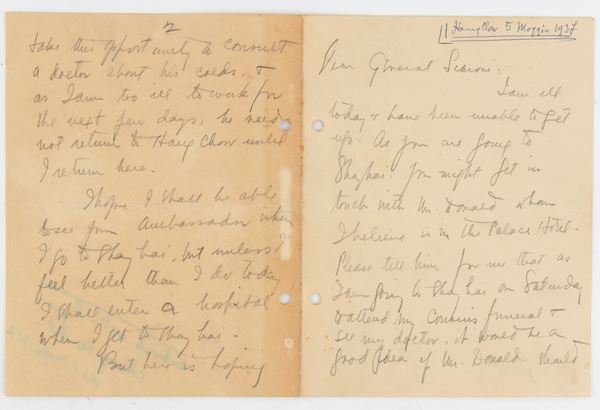 Hangchow 5 Maggio 1937
Dear General Scaroni:
I am ill
today & have been unable to get
up. As you are going to
Shaghai you might get in
touch with Mr. Donald whom
I believe is in the Palace Hotel.
Please tell him for me that as
I am going to Shaghai on Saturday
to attend my cousins funeral &
see my doctor, it would be a
good idea if Mr. Donald should
2
take this opportunity to consult
a doctor about his colds, &
as I am too ill to work for
the next few days, he need
not return to Hangchow until
I return here.
I hope I shall be able
to see your Ambassador when
I go to Shaghai, but unless I
feel better than I do today
I shall enter a hospital
when I get to Shaghai.
But here is hoping